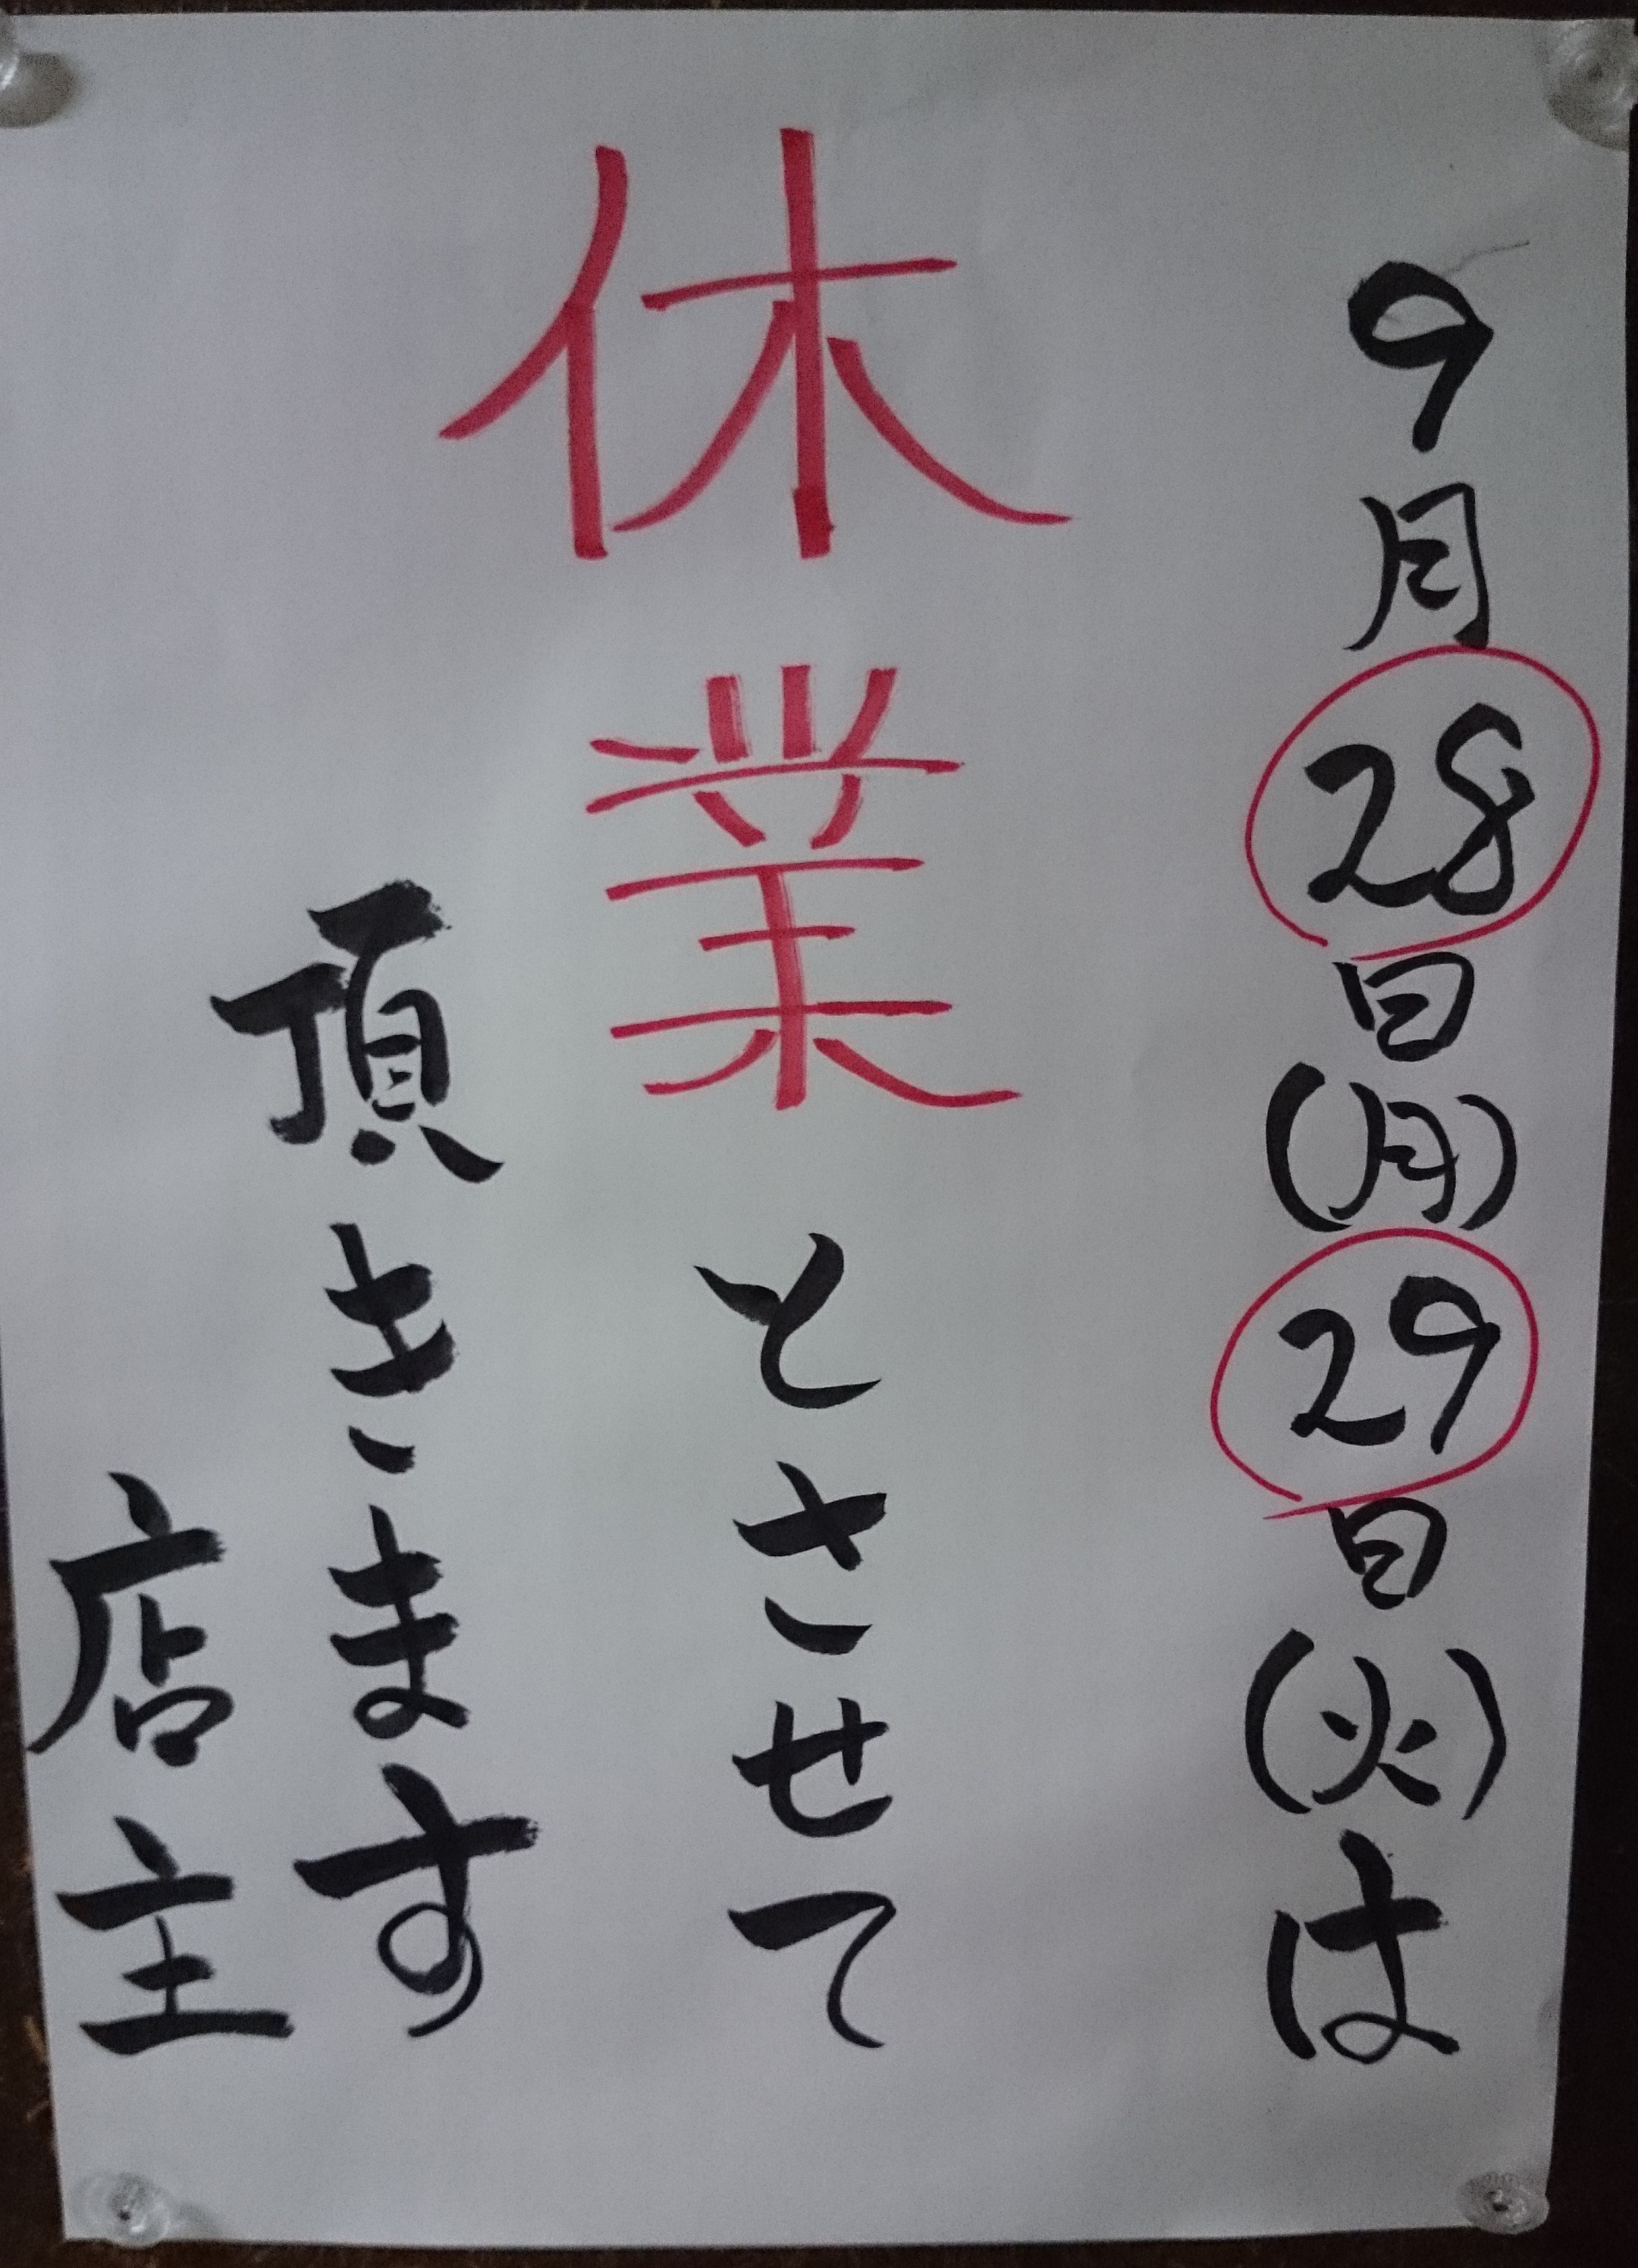 9月28日(月)29日(火)は
休業とさせて
頂きます
店主